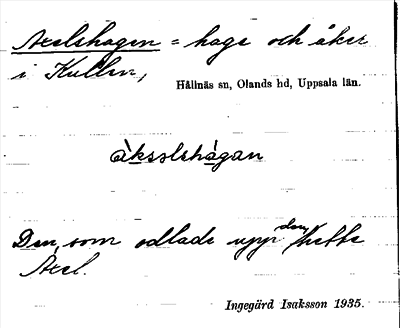 Axelshagen = hage och åker
i Kullen,
Hållnäs sn, Olands hd, Uppsala län.
àksəlshàgan
Den, som odlade upp den, hette
Axel.
Ingegärd Isaksson 1935.